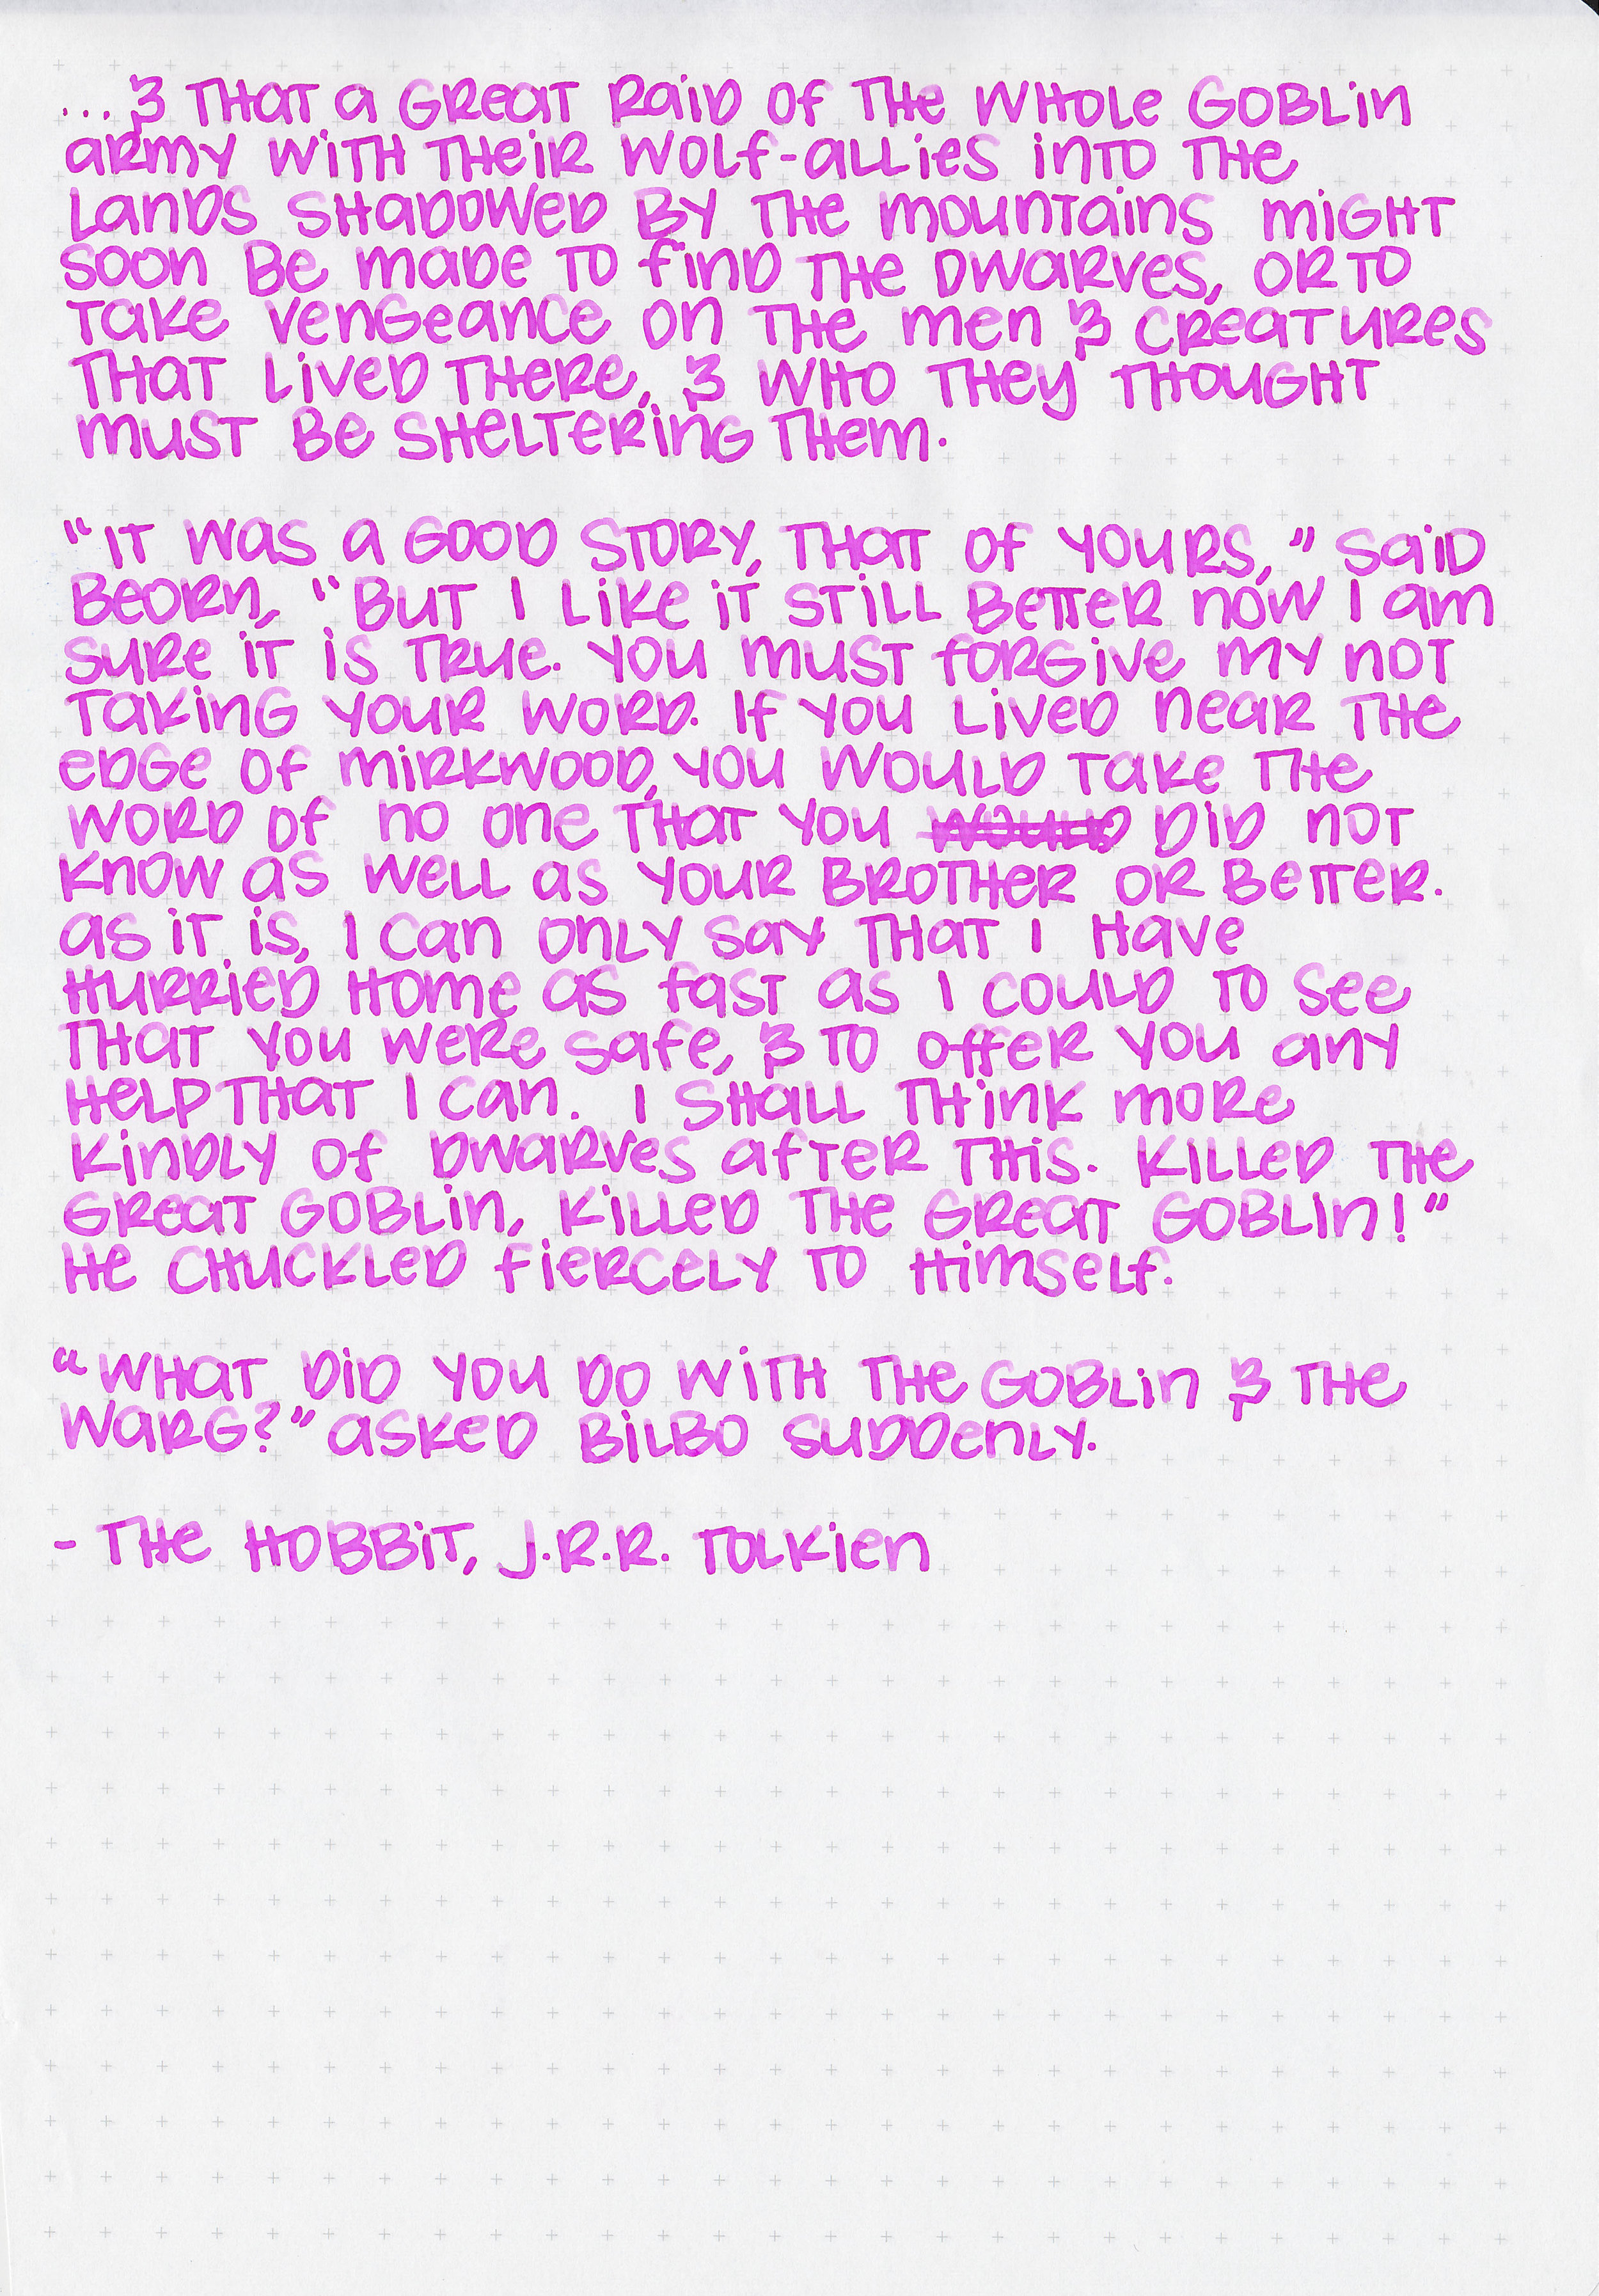 ...& that a great raid of the whole goblin
army with their wolf-allies into the
lands shadowed by the mountains might
soon be made to find the dwarves, or to
take vengeance on the men & creatures
that lived there, & who they thought
must be sheltering them.
"It was a good story, that of yours," said
Beorn, "But I like it still better now I am
sure it is true. You must forgive my not
taking your word. If you lived near the
edge of Mirkwood, you would take the
word of no one that you would did not
know as well as your brother or better.
As it is, I can only say that I have
hurried home as fast as I could to see
that you were safe, & to offer you any
help that I can. I shall think more
kindly of dwarves after this. Killed the
Great Goblin, killed the Great Goblin!"
He chuckled fiercely to himself.
"What did you do with the goblin & the
warg?" asked Bilbo suddenly.
- The Hobbit, J.R.R. Tolkien